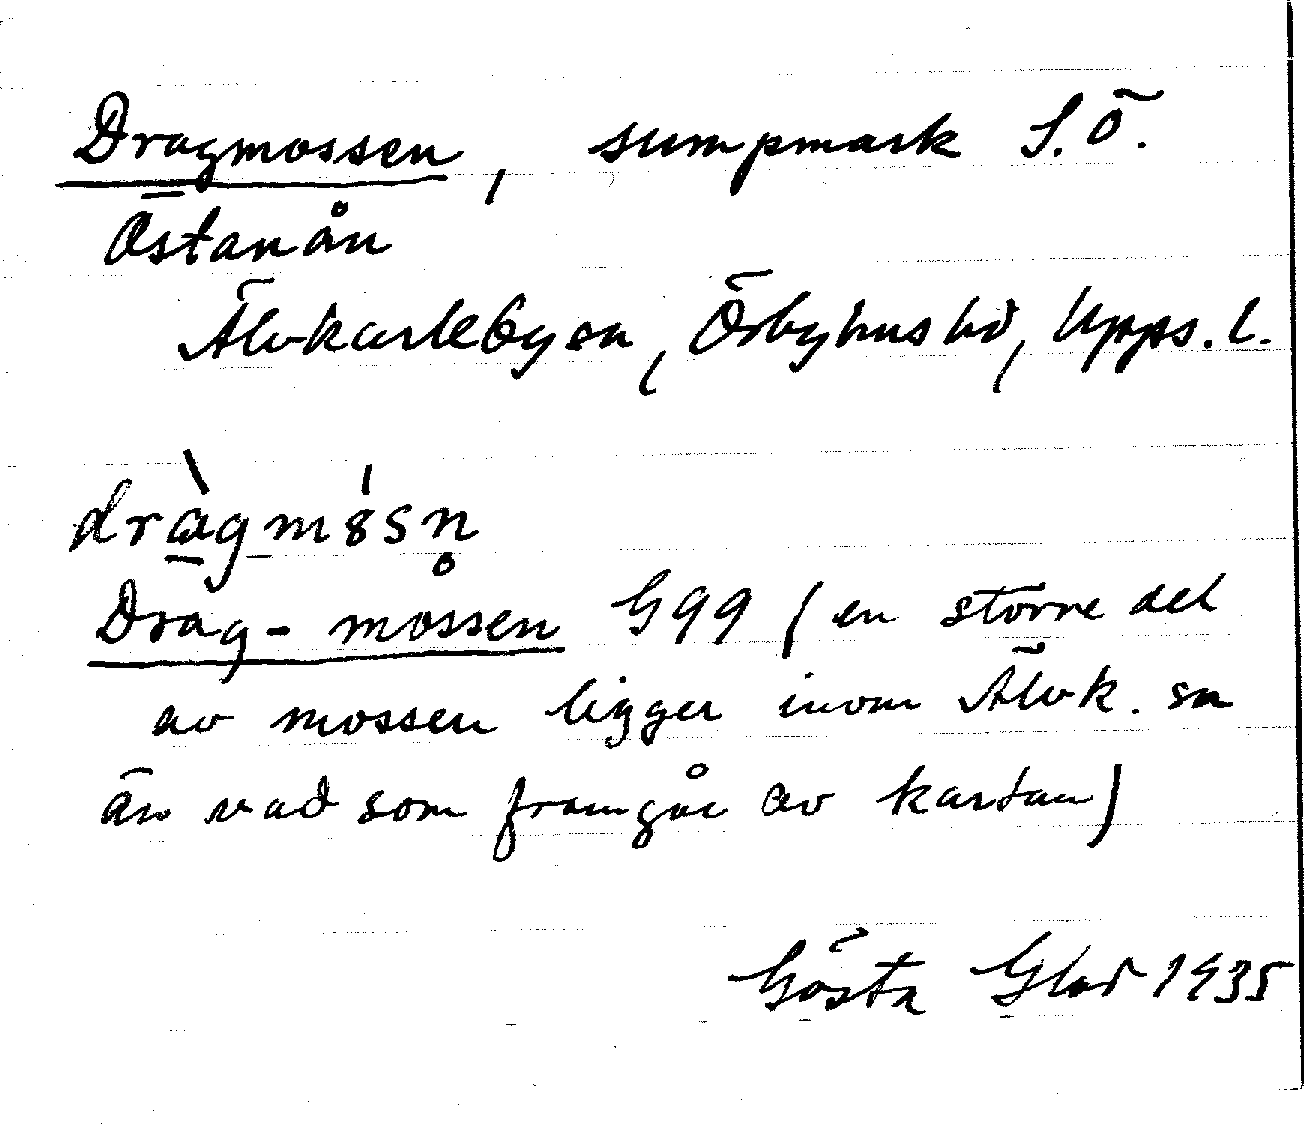 Dragmossen, sumpmark S.Ö.
Östanån
Älvkarleby sn, Örbyhus hd, Upps. l.
dràgmósn̥
Drag-mossen G99 (en större del
av mossen ligger inom Älvk. sn
än vad som framgår av kartan)
Gösta Glad 1935